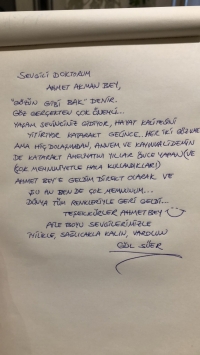 SEVGİLİ DOKTORUM
AHMET AKMAN BEY,
"GÖZÜN GİBİ BAK" DENİR.
GÖZ GERÇEKTEN ÇOK ÖNEMLİ.
YAŞAM SEVİNCİNİZ GİDİYOR, HAYAT KALİTESİNİ
YİTİRİYOR KATARAKT GELİNCE.. HER İKİ GÖZÜME
AMA HİÇ DOLAŞMADAN, ANNEM VE KAYINVALİDEMİN
DE KATARAKT AMELİYATINI YILLAR ÖNCE YAPAN (VE
ÇOK MEMNUNİYETLE HALA KULLANDIKLARI)
AHMET BEY'E GELDİM DİREKT OLARAK VE
ŞU AN BEN DE ÇOK MEMNUNUM...
DÜNYA TÜM RENKLERİYLE GERİ GELDİ...
TEŞEKKÜRLER AHMET BEY
AİLE BOYU SEVGİLERİMİZLE
İYİLİKLE, SAĞLICAKLA KALIN, VAROLUN
GÜL SÜER